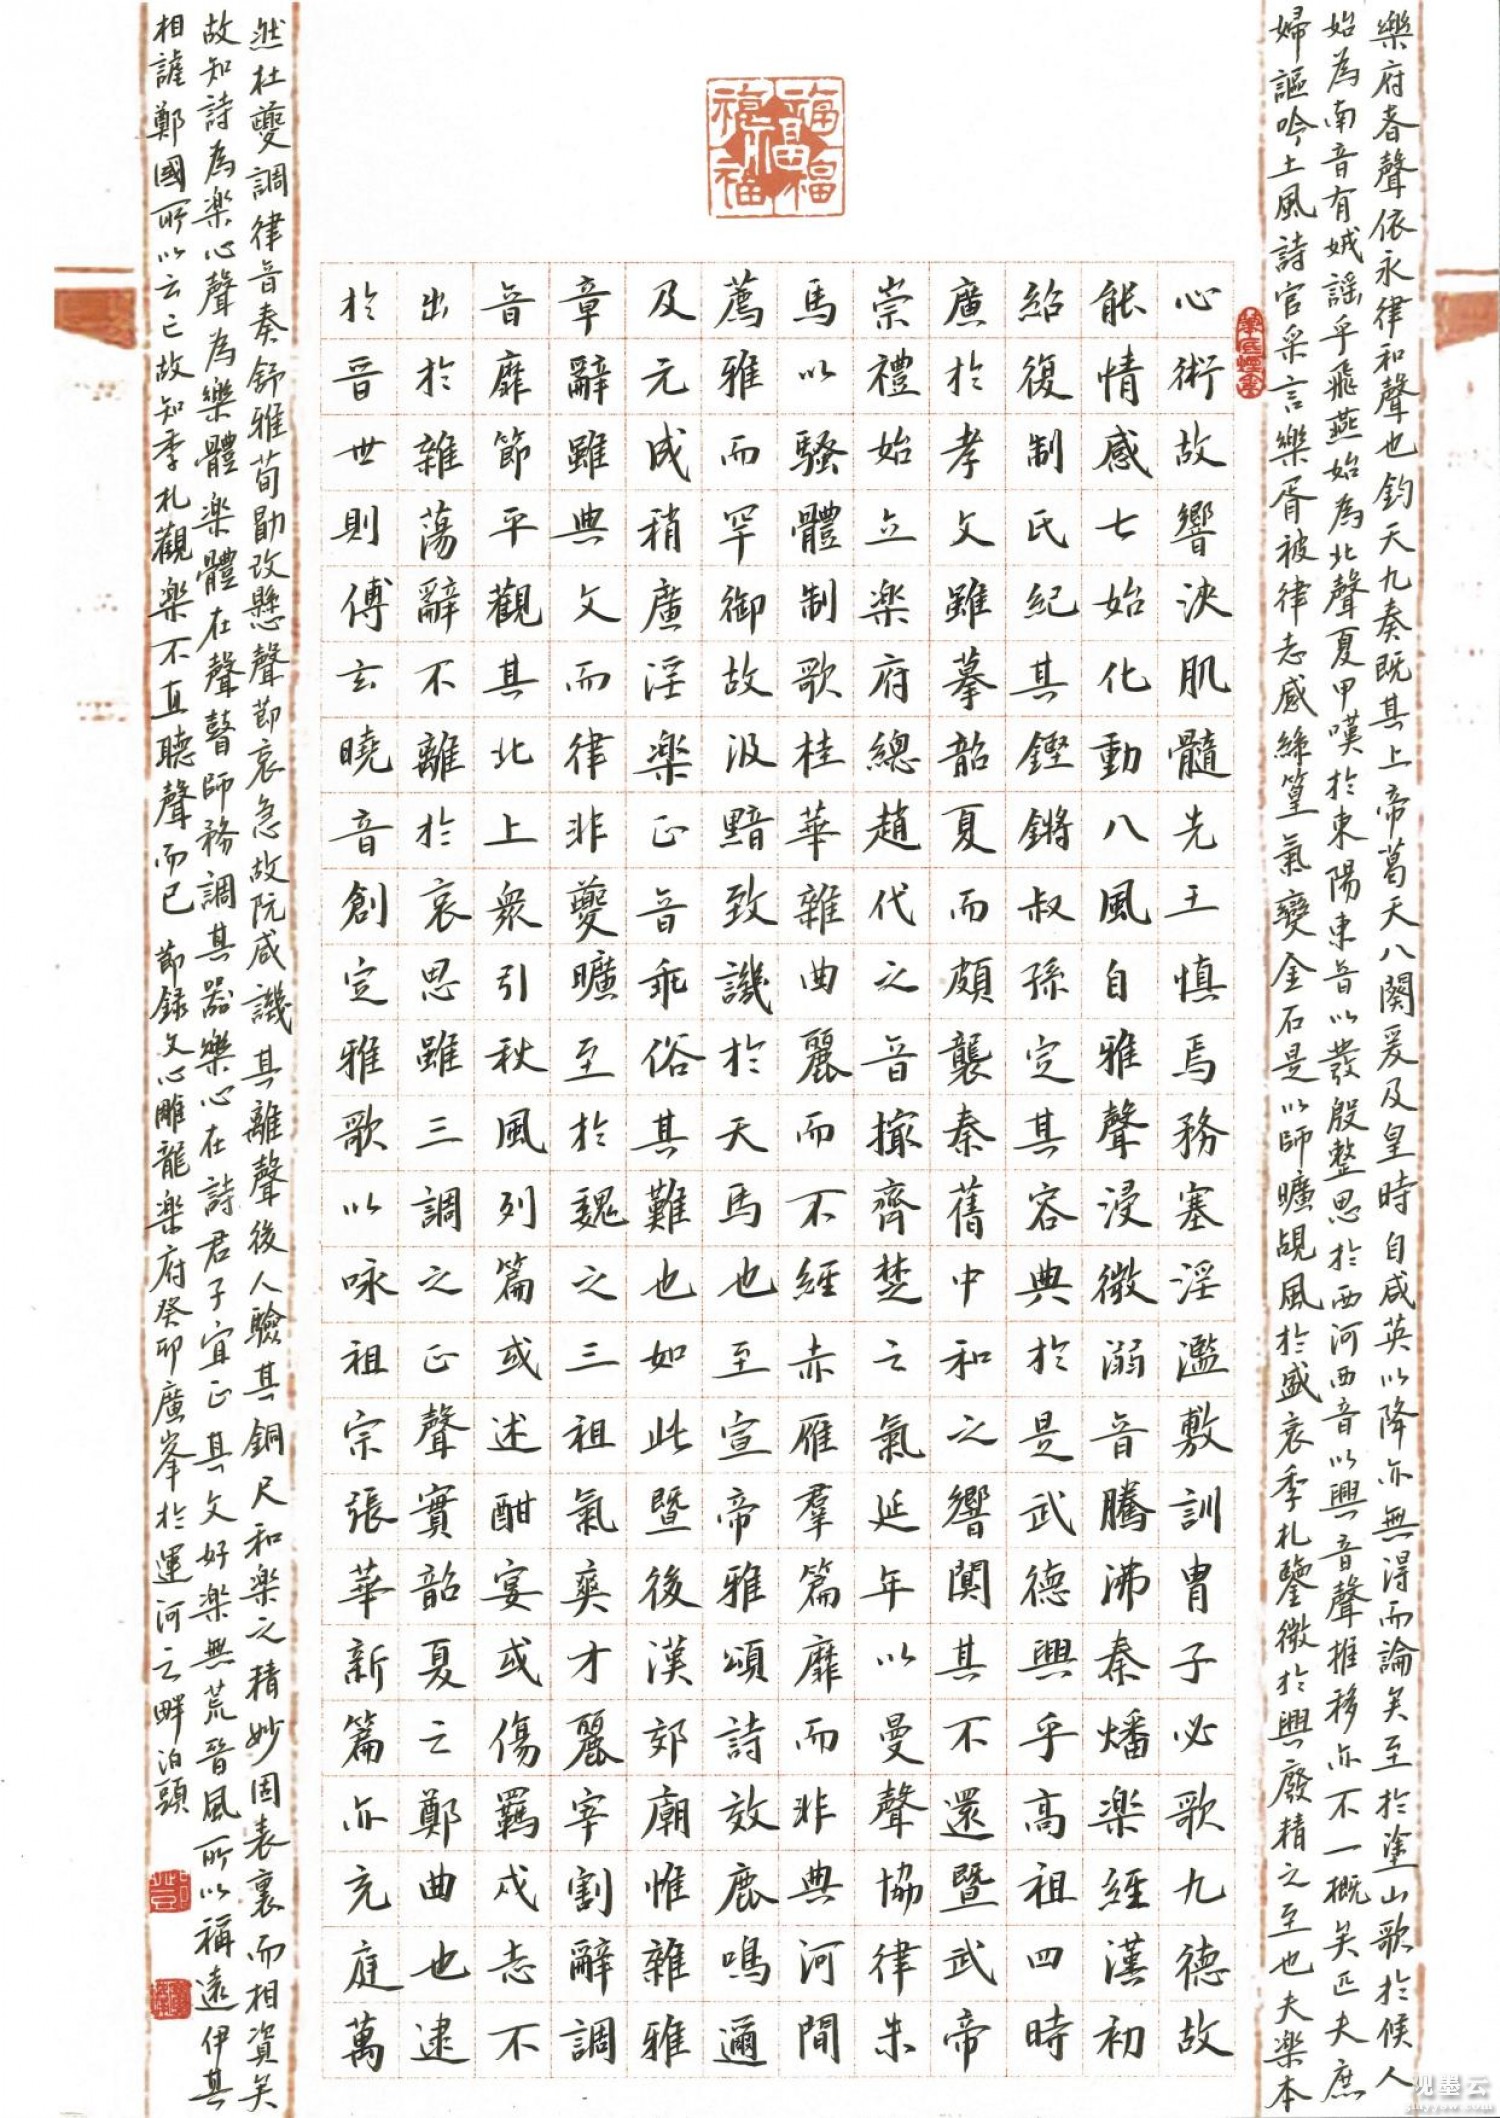 樂府者聲依永律和聲也鈞天九奏既其上帝葛天八闋爰及皇時自咸英以降亦無得而論矣至於塗山歌於候人
始為南音有娀謠乎飛燕始為北聲夏甲嘆於東陽東音以發殷整思於西河西音以興音聲推移亦不一概矣匹夫庶
婦謳吟土風詩官采言樂胥被律志感絲篁氣變金石是以師曠覘風於盛衰季札鑒微於興廢精之至也夫楽本
心術故響浹肌髓先王慎焉務塞淫濫敷訓胄子必歌九德故
能情感七始化動八風自雅聲浸微溺音騰沸秦燔楽經漢初
紹復制氏紀其鏗鏘叔孫定其容典於是武德興乎高祖四時
廣於孝文雖摹韶夏而頗襲秦舊中和之響闃其不還暨武帝
崇禮始立楽府總趙代之音撮齊楚之氣延年以曼聲協律朱
馬以騷體制歌桂華雜曲麗而不經赤雁羣篇靡而非典河間
薦雅而罕御故汲黯致譏於天馬也至宣帝雅頌詩效鹿鳴邇
及元成稍廣淫楽正音乖俗其難也如此暨後漢郊廟惟雜雅
章辭雖典文而律非夔曠至於魏之三祖氣爽才麗宰割辭調
音靡節平觀其北上眾引秋風列篇或述酣宴或傷羈戍志不
出於雜蕩辭不離於哀思雖三調之正聲實韶夏之鄭曲也逮
於晉世則傅玄曉音創定雅歌以咏祖宗張華新篇亦充庭萬
然杜夔調律音奏舒雅荀勖改懸聲節哀急故阮咸譏其離聲後人驗其銅尺和楽之精妙固表裏而相資矣
故知詩為楽心聲為樂體楽體在聲瞽師務調其器樂心在詩君子宜正其文好楽無荒晉風所以稱遠伊其
相謔鄭國所以云亡故知季札觀楽不直聽聲而已 節録文心雕龍楽府癸卯廣峯於運河之畔泊頭